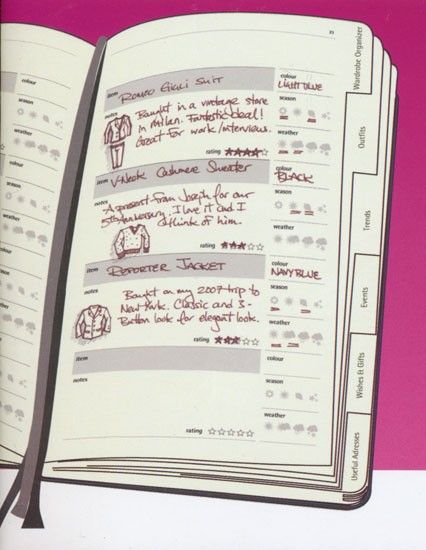 item ROMEO GIGLI SUIT
colour LIGHT BLUE
notes
Bought in a vintage store
in Milan. Fantastic deal!
Great for work/interviews.
season
weather
rating ★★★★☆
item V-Neck Cashmere Sweater
colour BLACK
notes
A present from Joseph for our
5th Anniversary. I love it and I
think of him.
season
weather
rating ★★★☆☆
item REPORTER JACKET
colour NAVY BLUE
notes
Bought on my 2007 trip to
New York. Classic and 3-
Button look for elegant look.
season
weather
rating ★★★☆☆
item
colour
notes
season
weather
rating ☆☆☆☆☆
Wardrobe Organizer
Outfits
Trends
Events
Wishes & Gifts
Useful Adresses
colour
season
weather
colour
season
weather
colour
season
weather
colour
season
weather